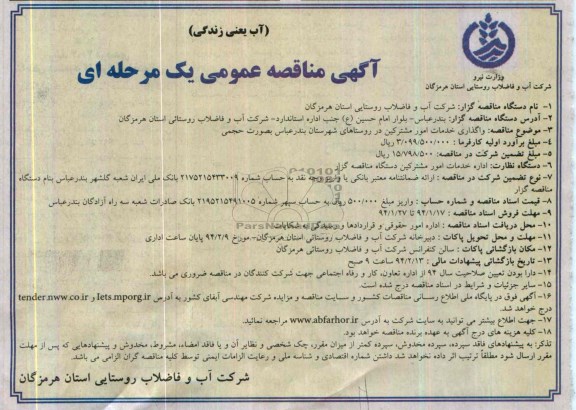 (آب یعنی زندگی)
آگهی مناقصه عمومی یک مرحله ای
وزارت نیرو
شرکت آب و فاضلاب روستایی استان هرمزگان
۱- نام دستگاه مناقصه گزار: شرکت آب و فاضلاب روستایی استان هرمزگان
۲- آدرس دستگاه مناقصه گزار: بندرعباس- بلوار امام حسین (ع) جنب اداره استاندارد- شرکت آب و فاضلاب روستائی استان هرمزگان
۳- موضوع مناقصه: واگذاری خدمات امور مشترکین در روستاهای شهرستان بندرعباس بصورت حجمی
۴- مبلغ برآورد اولیه کارفرما: ۳/۰۹۹/۵۰۰/۰۰۰ ریال
۵- مبلغ تضمین شرکت در مناقصه: ۱۵/۷۹۸/۵۰۰ ریال
۶- دستگاه نظارت: اداره خدمات امور مشترکین دستگاه مناقصه گزار
۷- نوع تضمین شرکت در مناقصه : ارائه ضمانتنامه معتبر بانکی یا واریز وجه نقد به حساب شماره ۲۱۷۵۲۱۵۴۳۳۰۰۹ بانک ملی ایران شعبه گلشهر بندرعباس بنام دستگاه
مناقصه گزار
۸- قیمت اسناد مناقصه و شماره حساب : واریز مبلغ ۵۰۰/۰۰۰ ریال به حساب سپهر شماره ۲۱۹۵۲۱۵۴۹۱۰۰۵ بانک صادرات شعبه سه راه آزادگان بندرعباس
۹- مهلت فروش اسناد مناقصه: ۹۴/۱/۱۷ تا ۹۴/۱/۲۷
۱۰- محل دریافت اسناد مناقصه : اداره امور حقوقی و قراردادها و رسیدگی به شکایات
۱۱- مهلت و محل تحویل پاکات : دبیرخانه شرکت آب و فاضلاب روستائی استان هرمزگان- مورخ ۹۴/۲/۹ پایان ساعت اداری
۱۲- مکان بازگشائی پاکات : سالن کنفرانس شرکت آب و فاضلاب روستائی هرمزگان
۱۳- تاریخ بازگشائی پیشنهادات مالی : ۹۴/۲/۱۳ ساعت ۹ صبح
۱۴- دارا بودن تعیین صلاحیت سال ۹۴ از اداره تعاون، کار و رفاه اجتماعی جهت شرکت کنندگان در مناقصه ضروری می باشد.
۱۵- سایر جزئیات و شرایط در اسناد مناقصه درج شده است.
۱۶- آگهی فوق در پایگاه ملی اطلاع رسانی مناقصات کشور و سایت مناقصه و مزایده شرکت مهندسی آبفای کشور به آدرس Iets.mporg.ir و tender.nww.co.ir
درج خواهد شد.
۱۷- جهت اطلاع بیشتر می توانید به سایت شرکت به آدرس www.abfarhor.ir مراجعه نمائید.
۱۸- کلیه هزینه های درج آگهی به عهده برنده مناقصه خواهد بود.
تذکر: به پیشنهادهای فاقد سپرده، سپرده مخدوش، سپرده کمتر از میزان مقرر، چک شخصی و نظایر آن و یا فاقد امضاء، مشروط، مخدوش و پیشنهادهایی که پس از مهلت
مقرر ارسال شود مطلقاً ترتیب اثر داده نخواهد شد داشتن شماره اقتصادی و شناسه ملی و رعایت الزامات ایمنی توسط کلیه مناقصه گران الزامی می باشد.
شرکت آب و فاضلاب روستایی استان هرمزگان